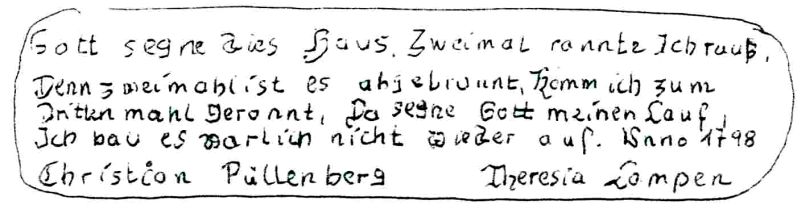 Gott segne dies Haus. Zweimal rannte Ich rauß,
Denn zweimahl ist es abgebrunnt, Komm ich zum
Dritten mahl geronnt, Da segne Gott meinen Lauf,
Ich bau es warlich nicht wieder auf. Anno 1798
Christian Püllenberg Theresia Lompen